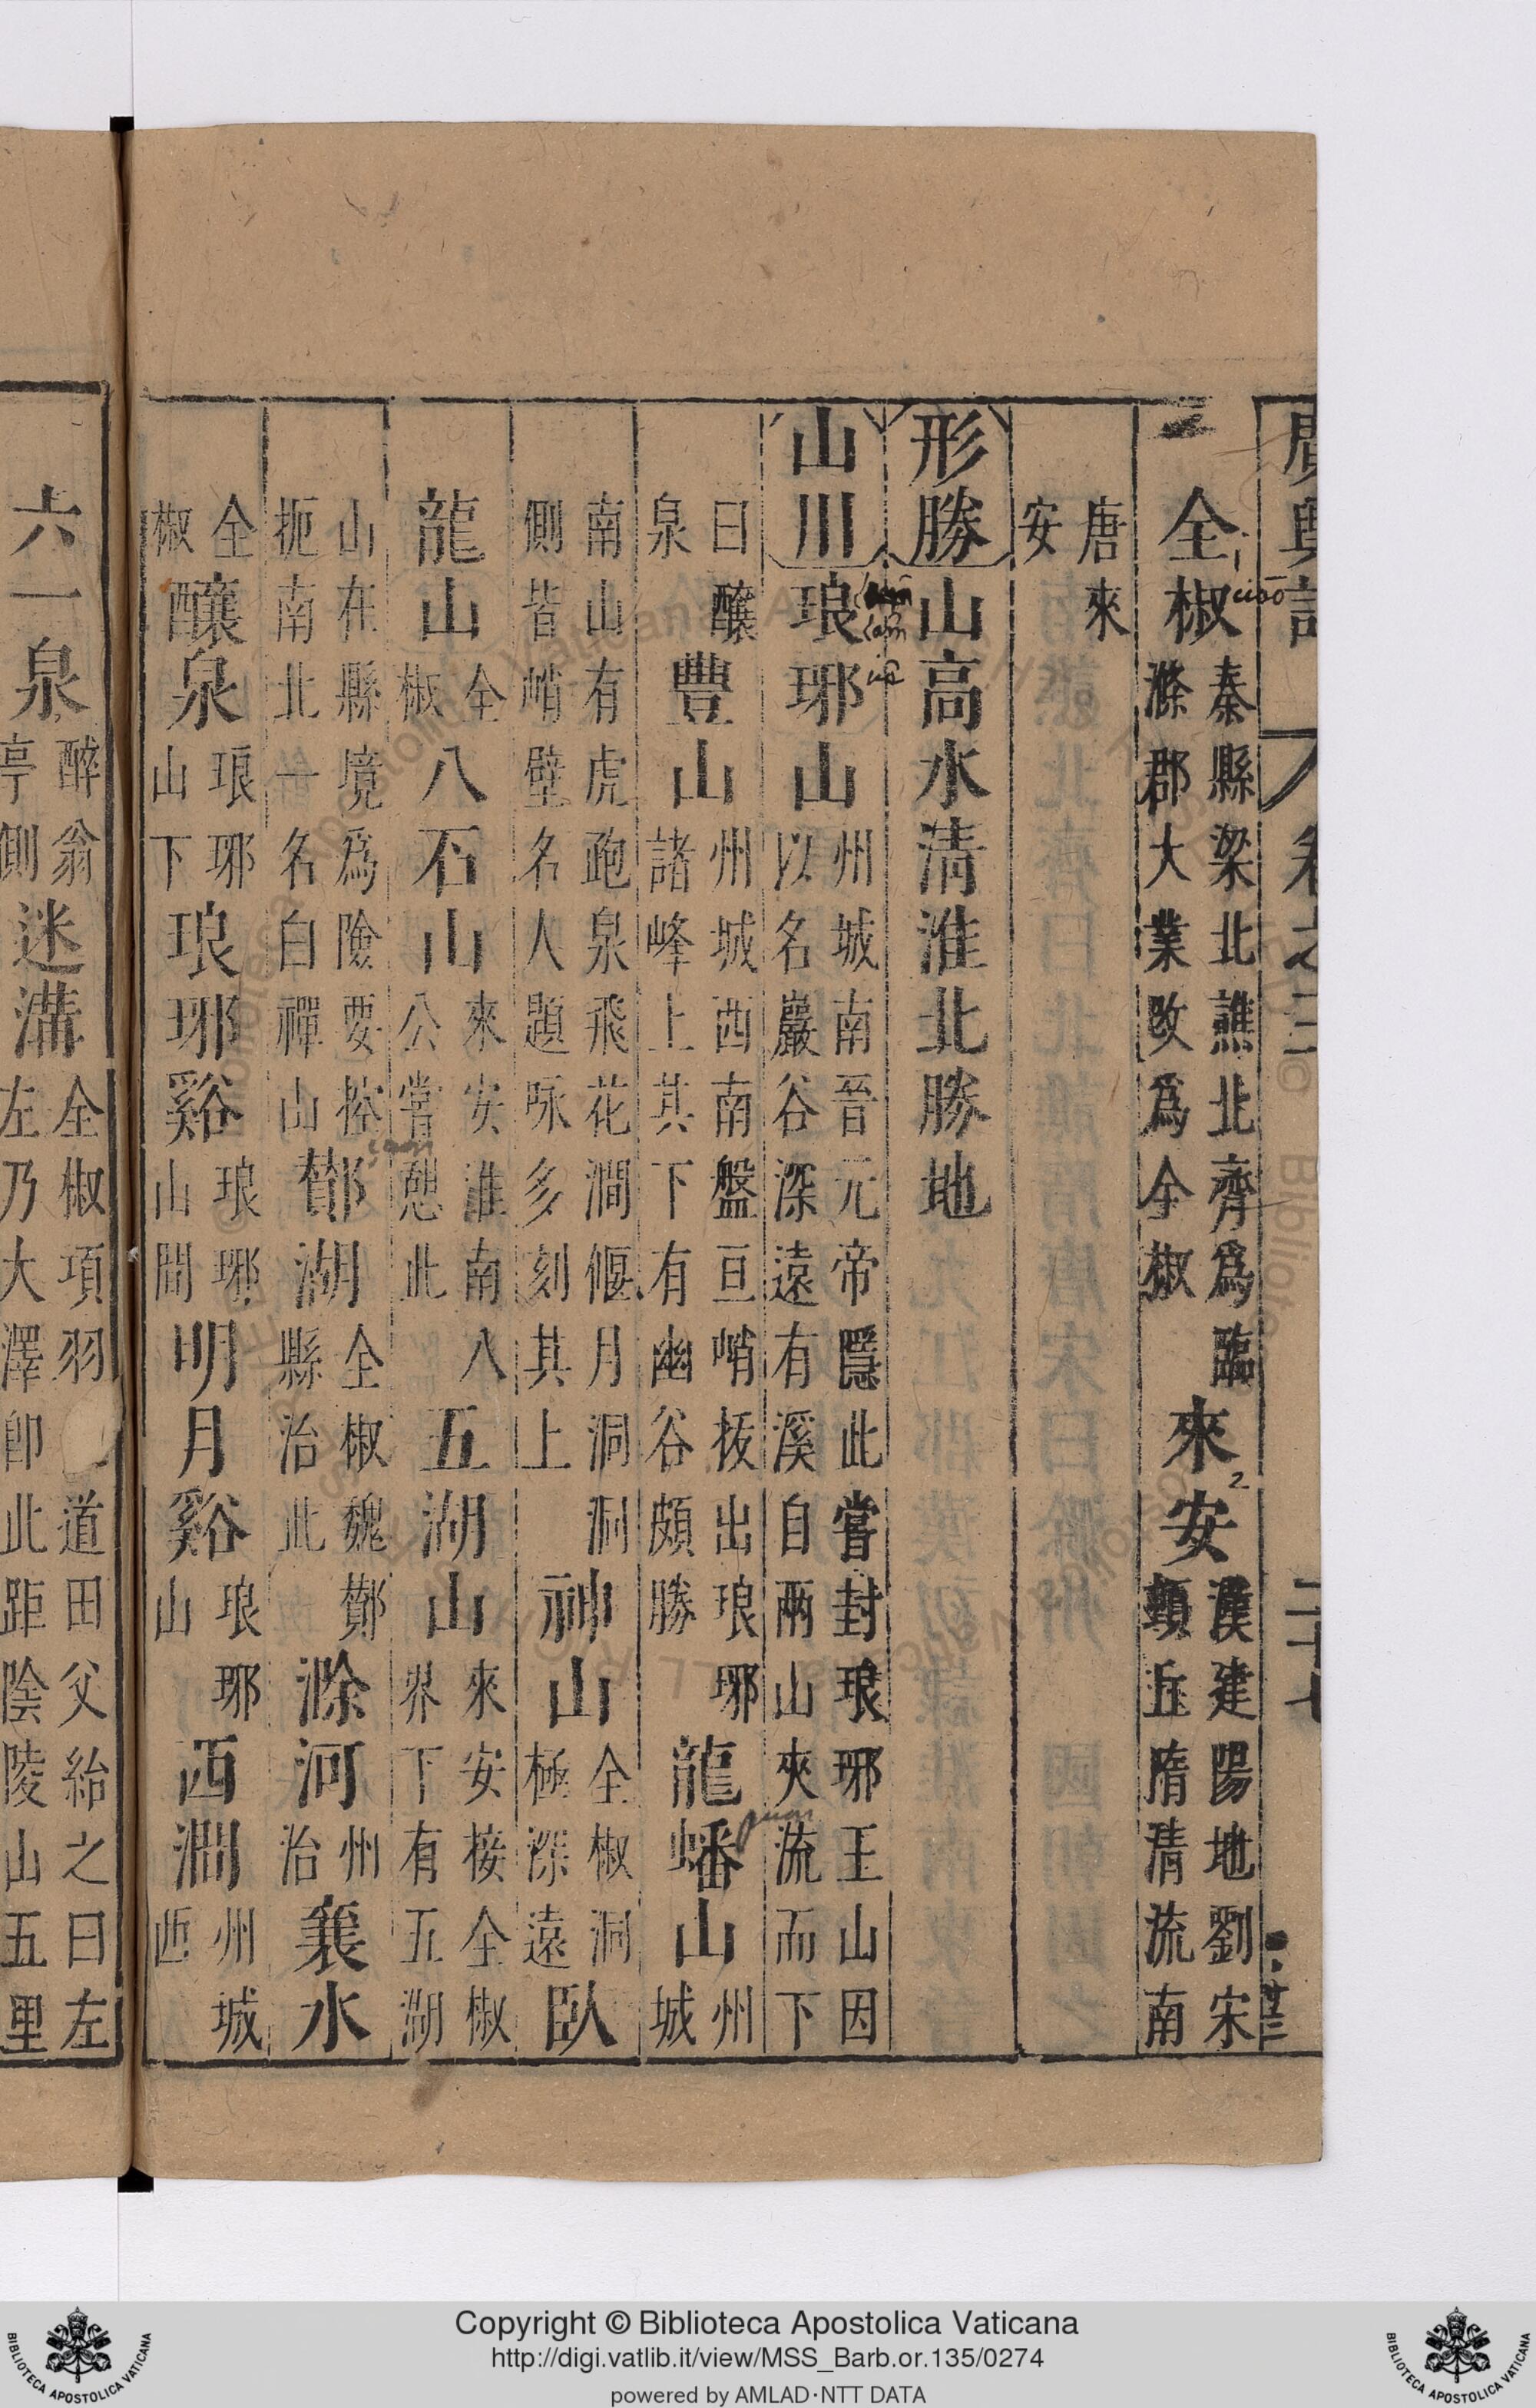 廣輿記 卷之三 二十七
全椒 秦縣梁北譙北齊爲臨滁郡大業改爲全椒 來安 漢建陽地劉宋頓丘隋清流南
唐來安
形勝 山高水清淮北勝地
山川 琅琊山 州城南晉元帝隱此嘗封琅琊王山因以名巖谷深遠有溪自兩山夾流而下
曰釀泉 豐山 州城西南盤亘峭拔出琅琊諸峰上其下有幽谷頗勝 龍蟠山 州城
南山有虎跑泉飛花澗偃月洞洞側皆峭壁名人題咏多刻其上 神山 全椒洞極深遠 臥
龍山 全椒 八石山 來安淮南八公嘗憩此 五湖山 來安接全椒界下有五湖
山在縣境爲險要控扼南北一名白禪山 酇湖 全椒魏酇縣治此 滁河 州治 襄水
全椒 釀泉 琅琊山下 琅琊谿 琅琊山間 明月谿 琅琊山 西澗 州城西
六一泉 醉翁亭側 迷溝 全椒項羽 道田父紿之曰左左乃大澤卽此距陰陵山五里
Copyright © Biblioteca Apostolica Vaticana
http://digi.vatlib.it/view/MSS_Barb.or.135/0274
powered by AMLAD·NTT DATA
BIBLIOTECA APOSTOLICA VATICANA
BIBLIOTECA APOSTOLICA VATICANA